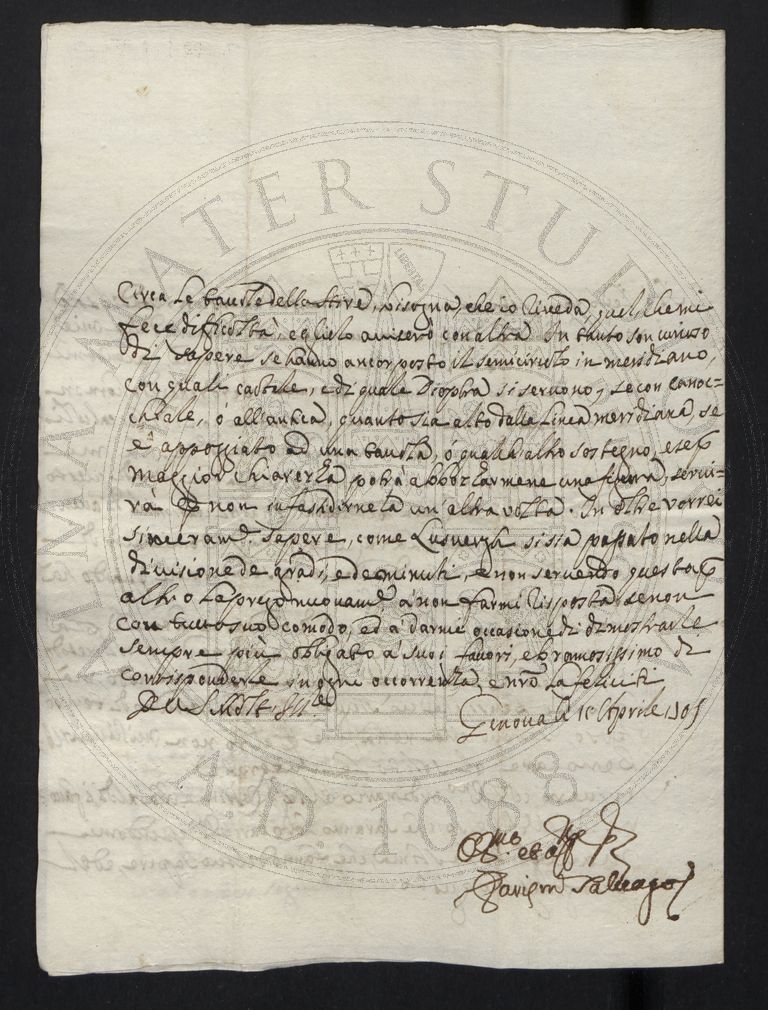 Circa le tavole della Hire, bisogna, che io riveda, quel che mi
fece difficoltà, e glielo aviserò con altra. In tanto son curioso
di sapere se hanno ancor posto il semicircolo in meridiano,
con quali cautele, e di quale Dioptra si servono, se con canoc-
chiale, ò all'antica, quanto sia alto dalla linea meridiana, se
è appoggiato ad una tavola, ò qualch'altro sostegno, e se
maggior chiarezza potrà abbozzarmene una figura, servi-
rà non infastidirnela un'altra volta. In oltre vorrei
sinceram. sapere, come Lusvergh si sia passato nella
divisione de gradi, e de minuti, e non servendo questa
altro la prego nuovam. à non farmi risposta se non
con tutto suo comodo, ed à darmi occasione di dimostrarle
sempre più obligato à suoi favori, e bramosissimo di
corrisponderle in ogni occorrenza, e
Di V S Molt Ill.
Genova li 18 Aprile 1705
Salvago
ALMA MATER STUD
A.D. 1088